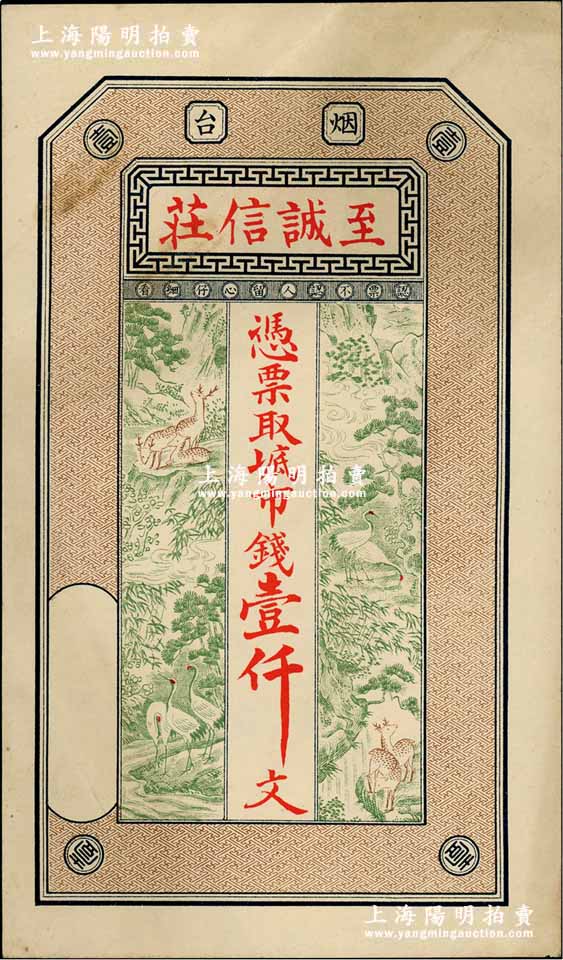 上海陽明拍賣
www.yangmingauction.com
烟台
至誠信荘
認票不認人留心仔細看
憑票取市錢壹仟文
上海陽明拍賣
www.yangmingauction.com
上海陽明拍賣
www.yangmingauction.com